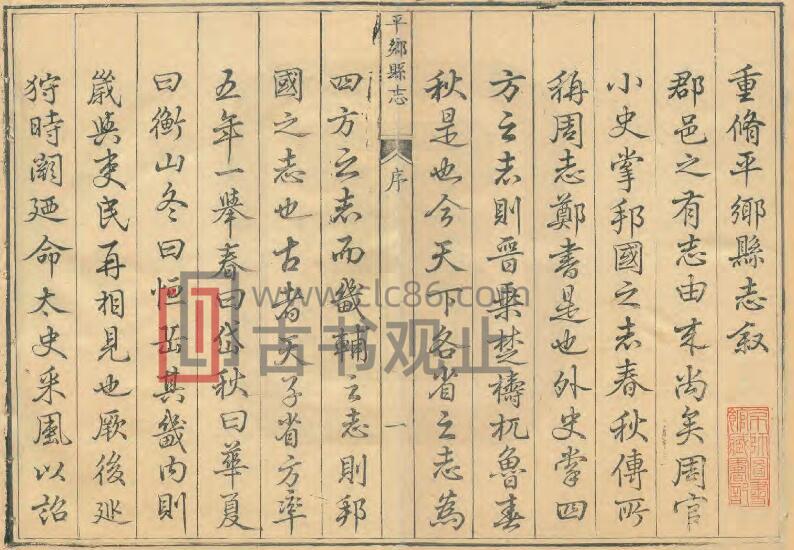 重脩平鄉縣志叙
郡邑之有志由來尚矣周官
小史掌邦國之志春秋傳所
稱周志鄭書是也外史掌四
方之志則晉乗楚檮杌魯春
秋是也今天下各省之志為
平鄉縣志
序
一
四方之志而畿輔之志則邦
國之志也古者天子省方率
五年一舉春曰岱秋曰華夏
曰衡山冬曰恒岳其畿内則
嵗與吏民再相見也厥後廵
狩時闕廼命太史采風以詔
www.clc86.com
古书观止